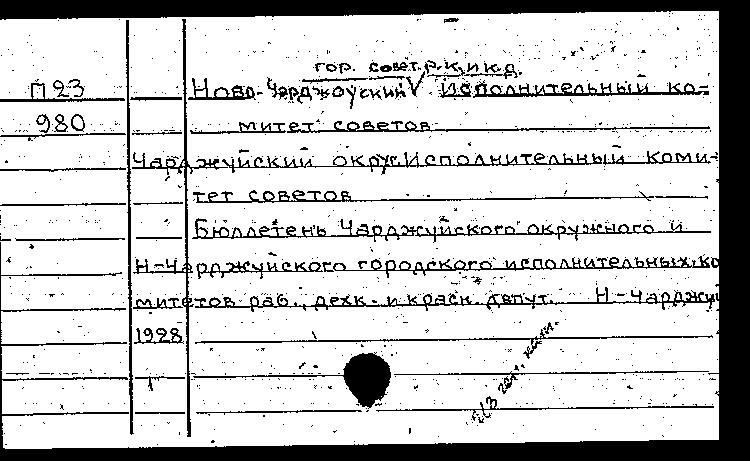 гор. совет.р.к,и к.д.
П 23 Ново-Чарджоуский V Исполнительный ко-
980 митет советов
Чарджуйский округ.Исполнительный коми-
тет советов
Бюллетень Чарджуйского окружного и
Н-Чарджуйского городского исполнительных.ко
митетов раб., дехк. и красн. депут. Н-Чарджуй
1928